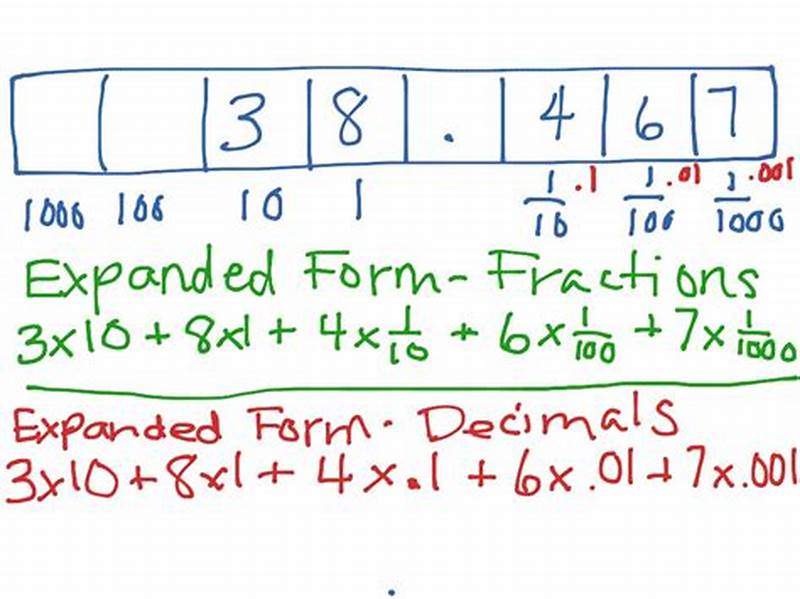 3 8 . 4 6 7
1000 100 10 1 1/10 .1 1/100 .01 1/1000 .001
Expanded Form - Fractions
3x10 + 8x1 + 4x1/10 + 6x1/100 + 7x1/1000
Expanded Form - Decimals
3x10 + 8x1 + 4x.1 + 6x.01 + 7x.001